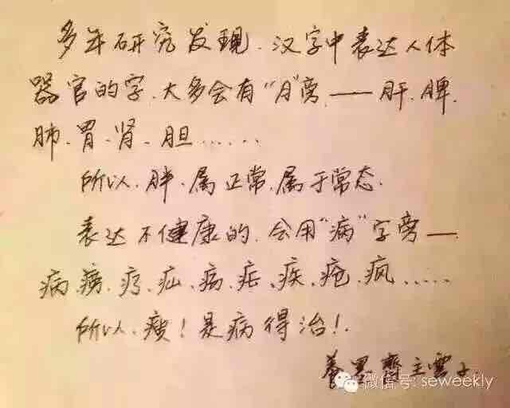 多年研究发现.汉字中表达人体
器官的字.大多会有“月”旁.——肝.脾.
肺.胃.肾.胆……
所以.胖.属正常.属于常态.
表达不健康的.会用“病”字旁——
病.痨.疗.疝.病.疟.疾.疮.疯……
所以.瘦!是病得治!.
养墨斋主云子
微信号: seweekly